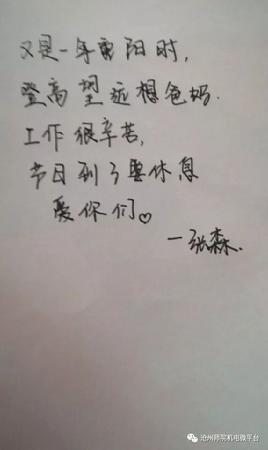 又是一年重阳时,
登高望远想爸妈.
工作很辛苦,
节日到了要休息
爱你们♡
—张森.
沧州师院机电微平台